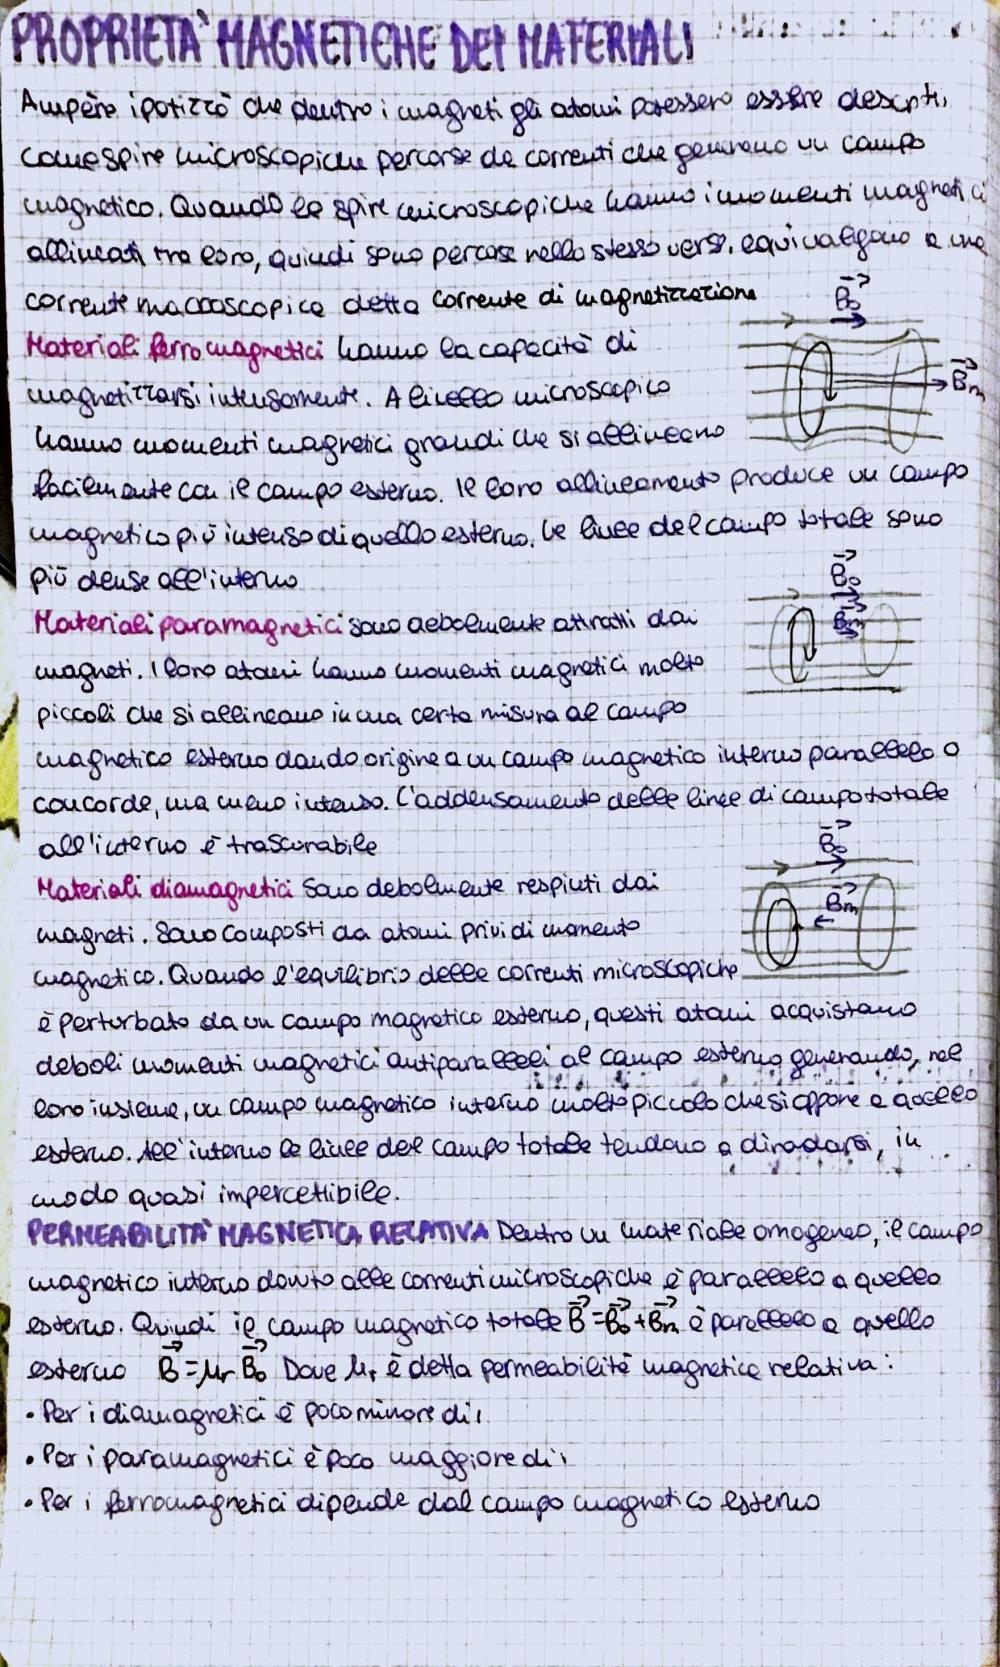 PROPRIETA' MAGNETICHE DEI MATERIALI
Ampère ipotizzò che dentro i magneti gli atomi potessero essere descritti,
come spire microscopiche percorse da correnti che generano un campo
magnetico. Quando le spire microscopiche hanno i momenti magnetici
allineati tra loro, quindi sono percorse nello stesso verso, equivalgono a una
corrente macroscopica detta corrente di magnetizzazione
B₀
Materiali ferromagnetici hanno la capacità di
magnetizzarsi intensamente. A livello microscopico
Bm
hanno momenti magnetici grandi che si allineano
facilmente con il campo esterno. Il loro allineamento produce un campo
magnetico più intenso di quello esterno. Le linee del campo totale sono
più dense all'interno
B₀
Materiali paramagnetici sono debolmente attratti dai
Bm
magneti. I loro atomi hanno momenti magnetici molto
piccoli che si allineano in una certa misura al campo
magnetico esterno dando origine a un campo magnetico interno parallelo o
concorde, ma meno intenso. L'addensamento delle linee di campo totale
all'interno è trascurabile
B₀
Materiali diamagnetici sono debolmente respinti dai
Bm
magneti. Sono composti da atomi privi di momento
magnetico. Quando l'equilibrio delle correnti microscopiche
è perturbato da un campo magnetico esterno, questi atomi acquistano
deboli momenti magnetici antiparalleli al campo esterno generando, nel
loro insieme, un campo magnetico interno molto piccolo che si oppone a quello
esterno. All'interno le linee del campo totale tendono a diradarsi, in
modo quasi impercettibile.
PERMEABILITA' MAGNETICA RELATIVA Dentro un materiale omogeneo, il campo
magnetico interno dovuto alle correnti microscopiche è parallelo a quello
esterno. Quindi il campo magnetico totale B=B₀+Bm è parallelo a quello
esterno B=μr B₀ Dove μr è detta permeabilità magnetica relativa:
• Per i diamagnetici è poco minore di 1
• Per i paramagnetici è poco maggiore di 1
• Per i ferromagnetici dipende dal campo magnetico esterno